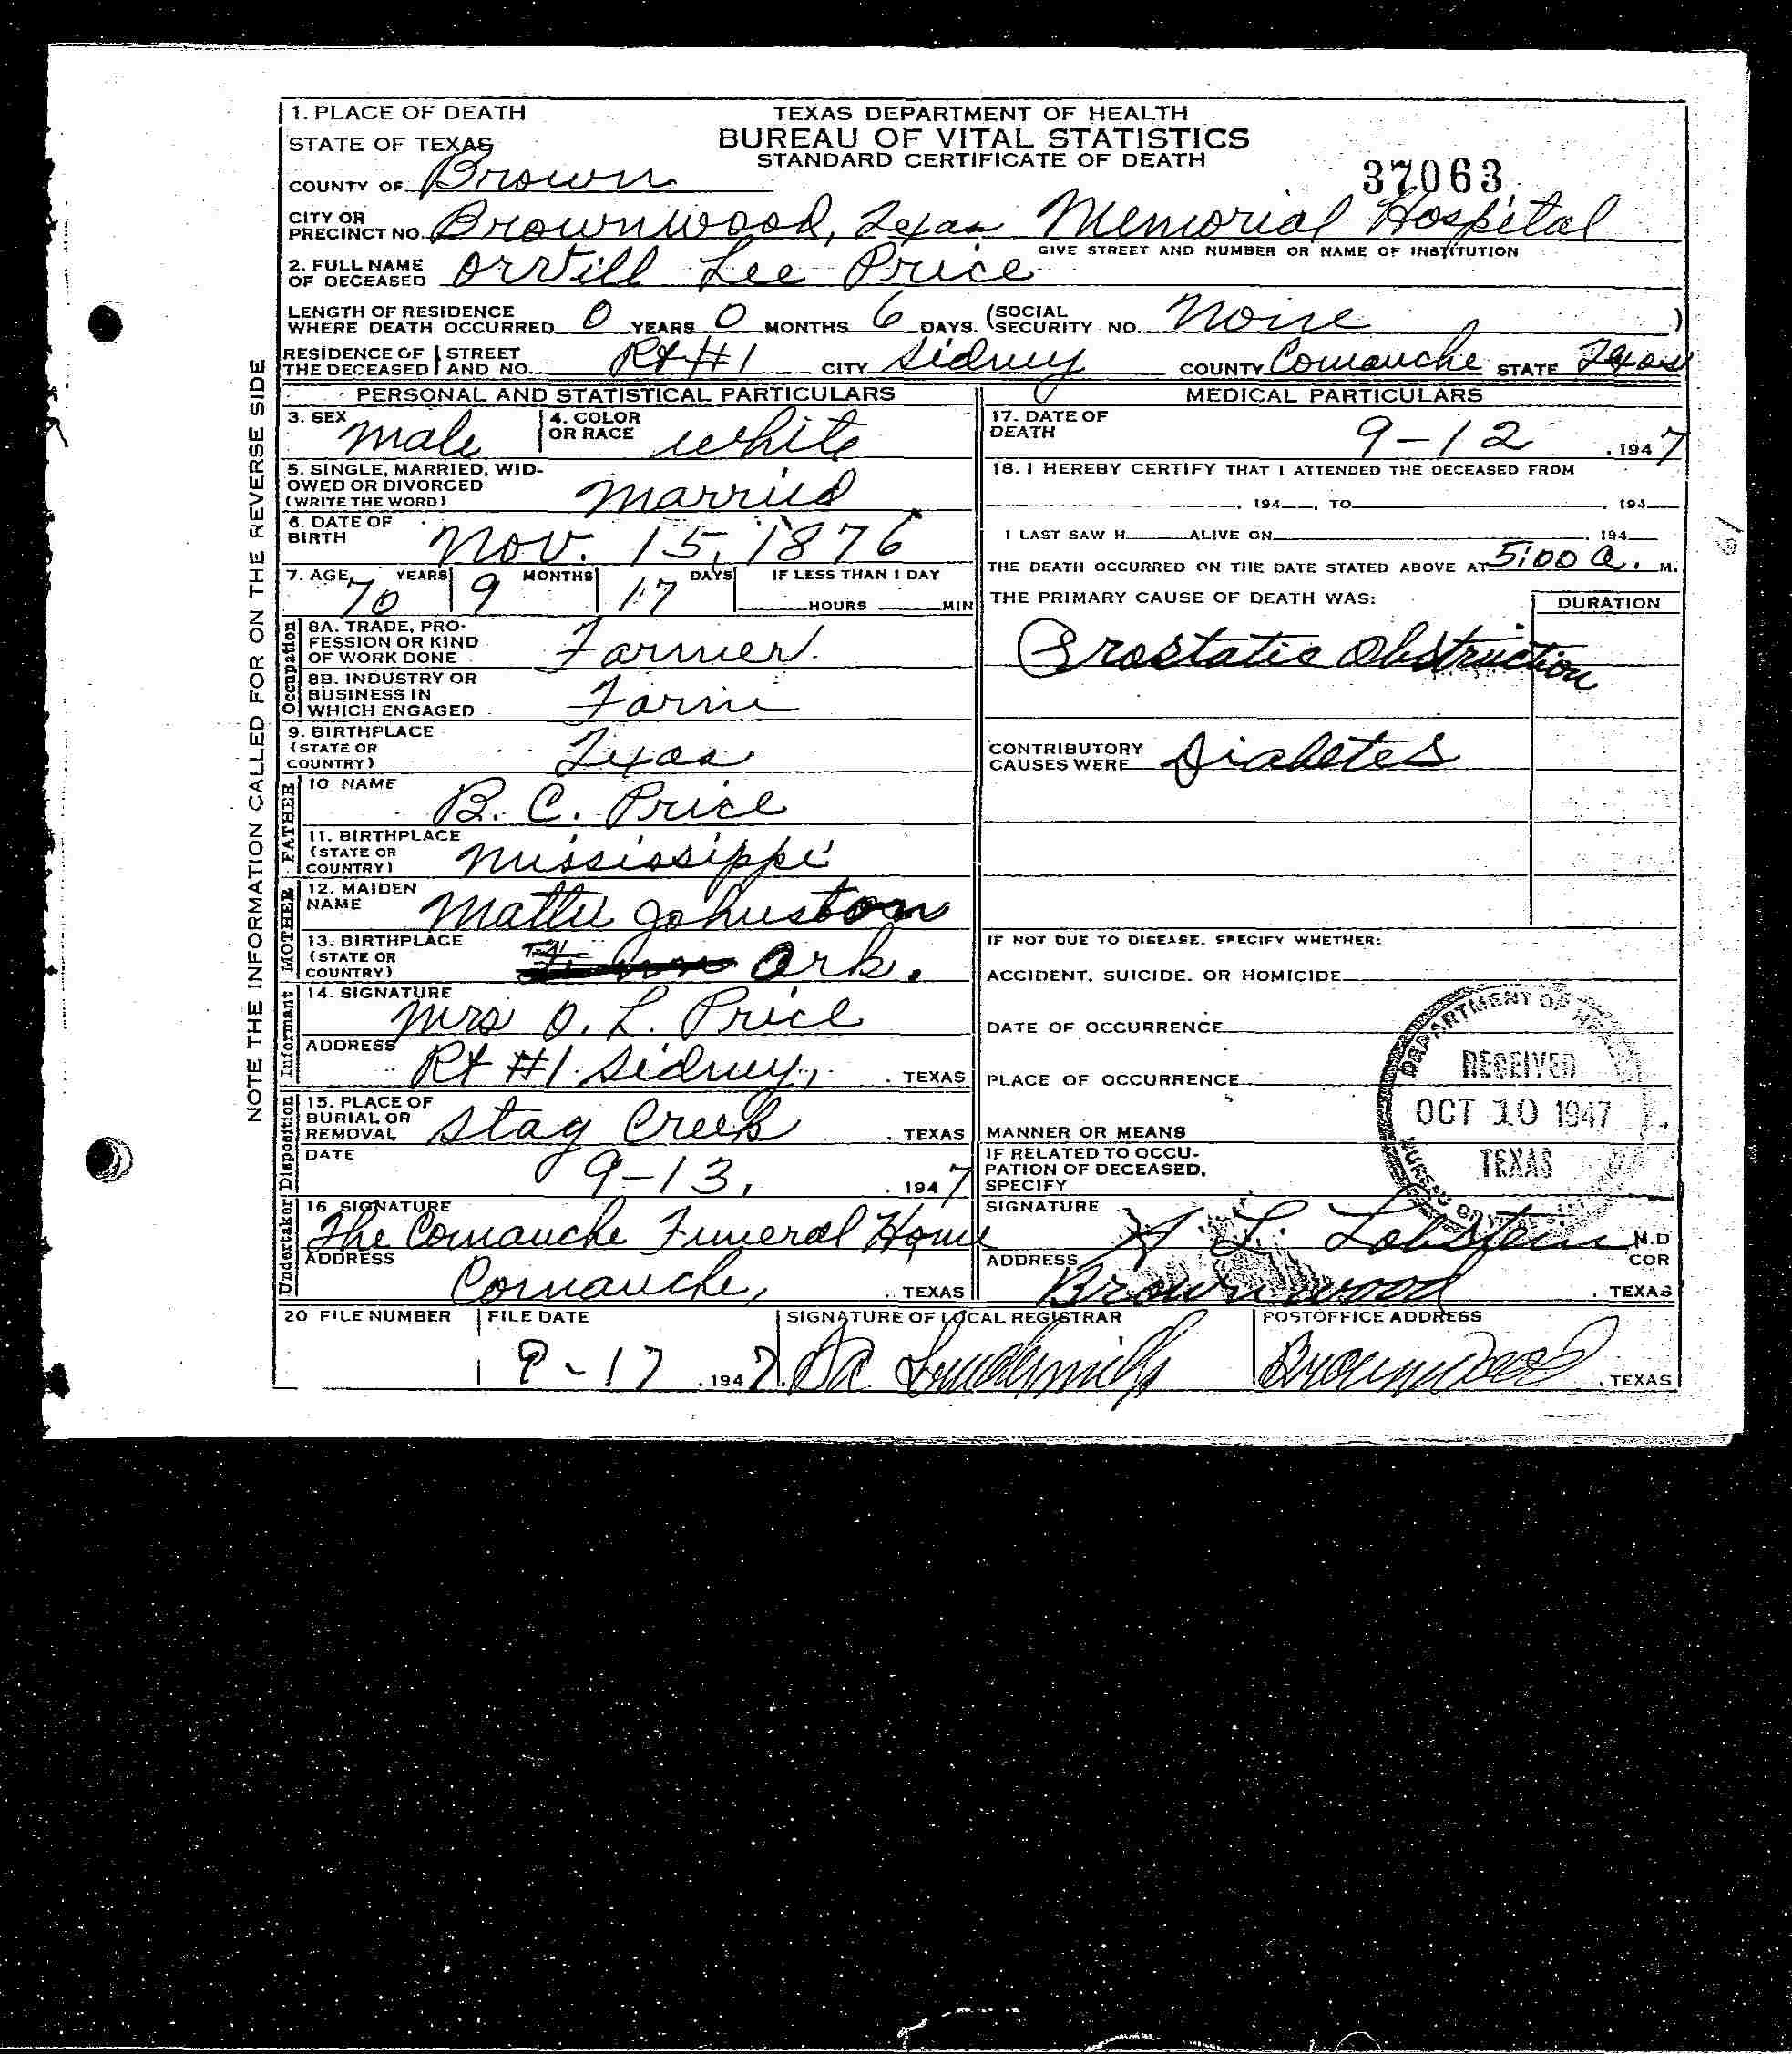 1. PLACE OF DEATH
TEXAS DEPARTMENT OF HEALTH
BUREAU OF VITAL STATISTICS
STANDARD CERTIFICATE OF DEATH
STATE OF TEXAS
COUNTY OF Brown
37063
CITY OR PRECINCT NO. Brownwood, Texas Memorial Hospital
GIVE STREET AND NUMBER OR NAME OF INSTITUTION
2. FULL NAME OF DECEASED Orvill Lee Price
LENGTH OF RESIDENCE WHERE DEATH OCCURRED 0 YEARS 0 MONTHS 6 DAYS. (SOCIAL SECURITY NO. None )
RESIDENCE OF THE DECEASED STREET AND NO. Rt #1 CITY Sidney COUNTY Comanche STATE Texas
PERSONAL AND STATISTICAL PARTICULARS
3. SEX male 4. COLOR OR RACE white
5. SINGLE, MARRIED, WIDOWED OR DIVORCED (WRITE THE WORD) married
6. DATE OF BIRTH Nov. 15, 1876
7. AGE 70 YEARS 9 MONTHS 17 DAYS IF LESS THAN 1 DAY HOURS MIN
Occupation
8A. TRADE, PROFESSION OR KIND OF WORK DONE Farmer
8B. INDUSTRY OR BUSINESS IN WHICH ENGAGED Farm
9. BIRTHPLACE (STATE OR COUNTRY) Texas
FATHER
10 NAME B. C. Price
11. BIRTHPLACE (STATE OR COUNTRY) Mississippi
MOTHER
12. MAIDEN NAME Mattie Johnston
13. BIRTHPLACE (STATE OR COUNTRY) Ark.
Informant
14. SIGNATURE Mrs O. L. Price
ADDRESS Rt #1 Sidney, TEXAS
Disposition
15. PLACE OF BURIAL OR REMOVAL Stag Creek TEXAS
DATE 9-13, 1947
Undertaker
16 SIGNATURE The Comanche Funeral Home
ADDRESS Comanche, TEXAS
MEDICAL PARTICULARS
17. DATE OF DEATH 9-12, 1947
18. I HEREBY CERTIFY THAT I ATTENDED THE DECEASED FROM
, 194 , TO , 194
I LAST SAW H ALIVE ON 194
THE DEATH OCCURRED ON THE DATE STATED ABOVE AT 5:00 A. M.
THE PRIMARY CAUSE OF DEATH WAS: DURATION
Prostatic Obstruction
CONTRIBUTORY CAUSES WERE Diabetes
IF NOT DUE TO DISEASE, SPECIFY WHETHER:
ACCIDENT, SUICIDE, OR HOMICIDE
DATE OF OCCURRENCE
PLACE OF OCCURRENCE
MANNER OR MEANS
IF RELATED TO OCCUPATION OF DECEASED, SPECIFY
DEPARTMENT OF HEALTH
RECEIVED
OCT 10 1947
TEXAS
SIGNATURE L. Lobstein M.D COR
ADDRESS Brownwood TEXAS
20 FILE NUMBER FILE DATE 9-17 1947 SIGNATURE OF LOCAL REGISTRAR POSTOFFICE ADDRESS Brownwood TEXAS
NOTE THE INFORMATION CALLED FOR ON THE REVERSE SIDE